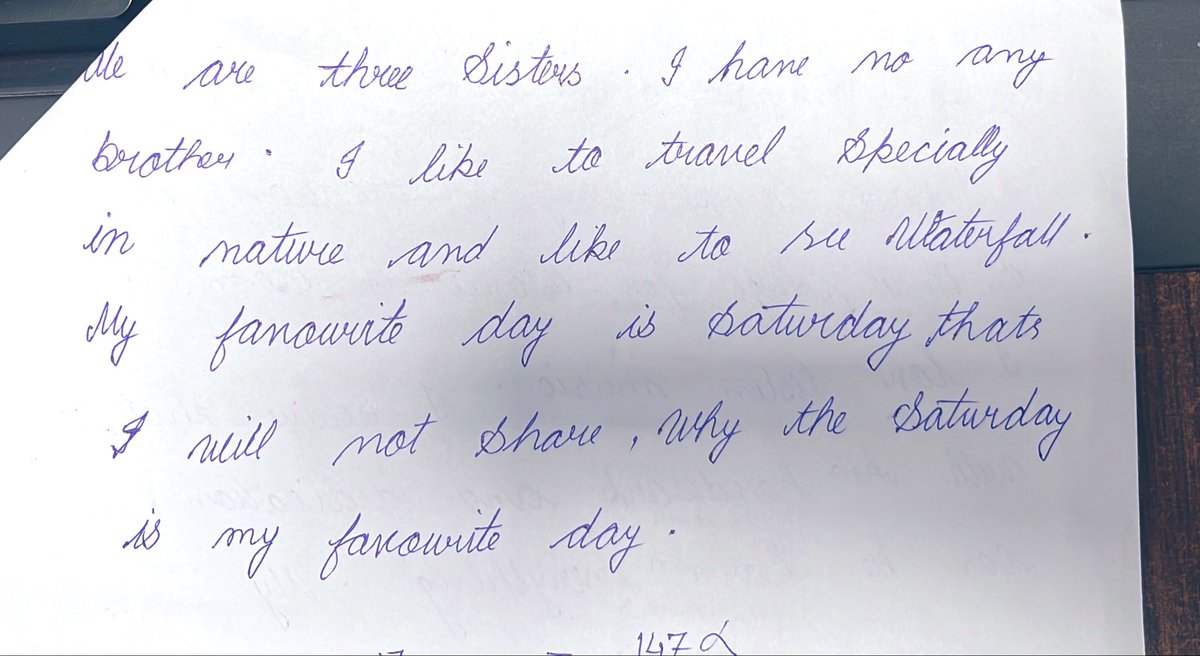 We are three Sisters. I have no any
brother. I like to travel specially
in nature and like to see Waterfall.
My favourite day is Saturday thats
I will not share, Why the Saturday
is my favourite day.
147